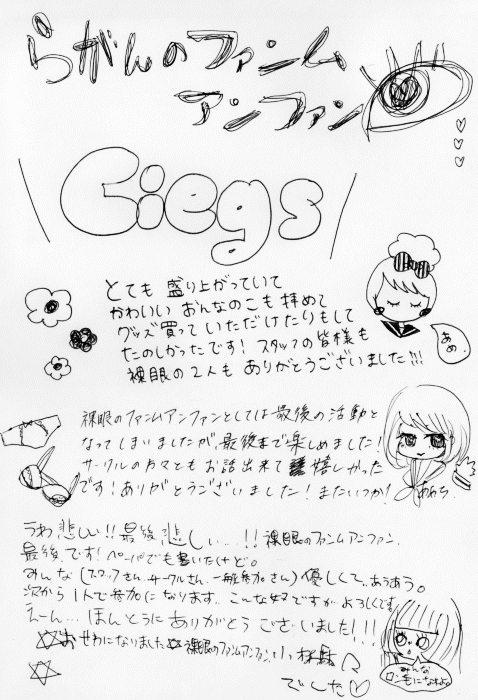 らがんのファンム
アンファン
Ciegs
とても 盛り上がっていて
かわいい おんなのこも 拝めて
グッズ買って いただけたりもして
たのしかったです! スタッフの皆様も
裸眼の2人も ありがとうございました!!!
あめ.
裸眼のファンムアンファンとしては最後の活動と
なってしまいましたが、最後まで楽しめました!
サークルの方々ともお話出来て 嬉しかった
です! ありがとうございました! またいつか!
うわ 悲しい!! 最後 悲しい… !! 裸眼のファンムアンファン.
最後です! ペーパでも書いたけど。
みんな (スタッフさん、サークルさん、一般参加さん) 優しくて、あうあう。
次から1人で参加になります.. こんな奴ですが よろしくです
えーん… ほんとうにありがとう ございました!!!
☆おせわになりました☆ 裸眼のファンムアンファン,
でした♡
みんな
ロン毛になれよ